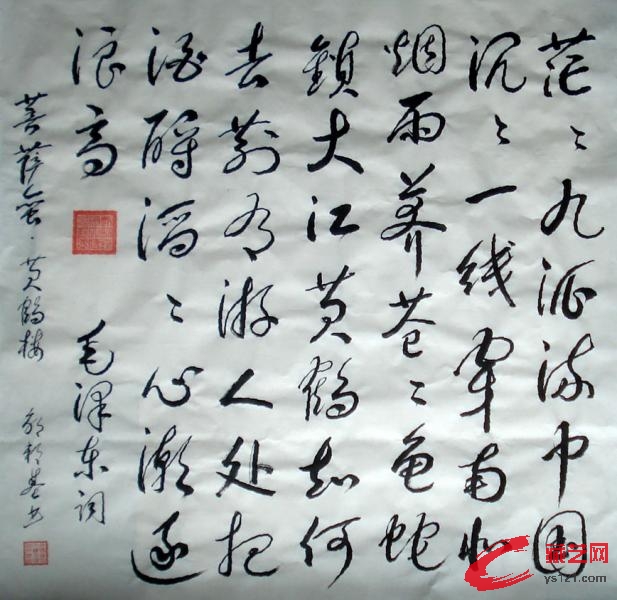 茫〻九派流中国
沉〻一线穿南北
烟雨莽苍〻龟蛇
鎖大江黄鹤知何
去剩有游人处把
酒酹滔〻心潮逐
浪高
毛泽东词
菩萨蛮·黄鹤楼
藏艺网
ys121.com